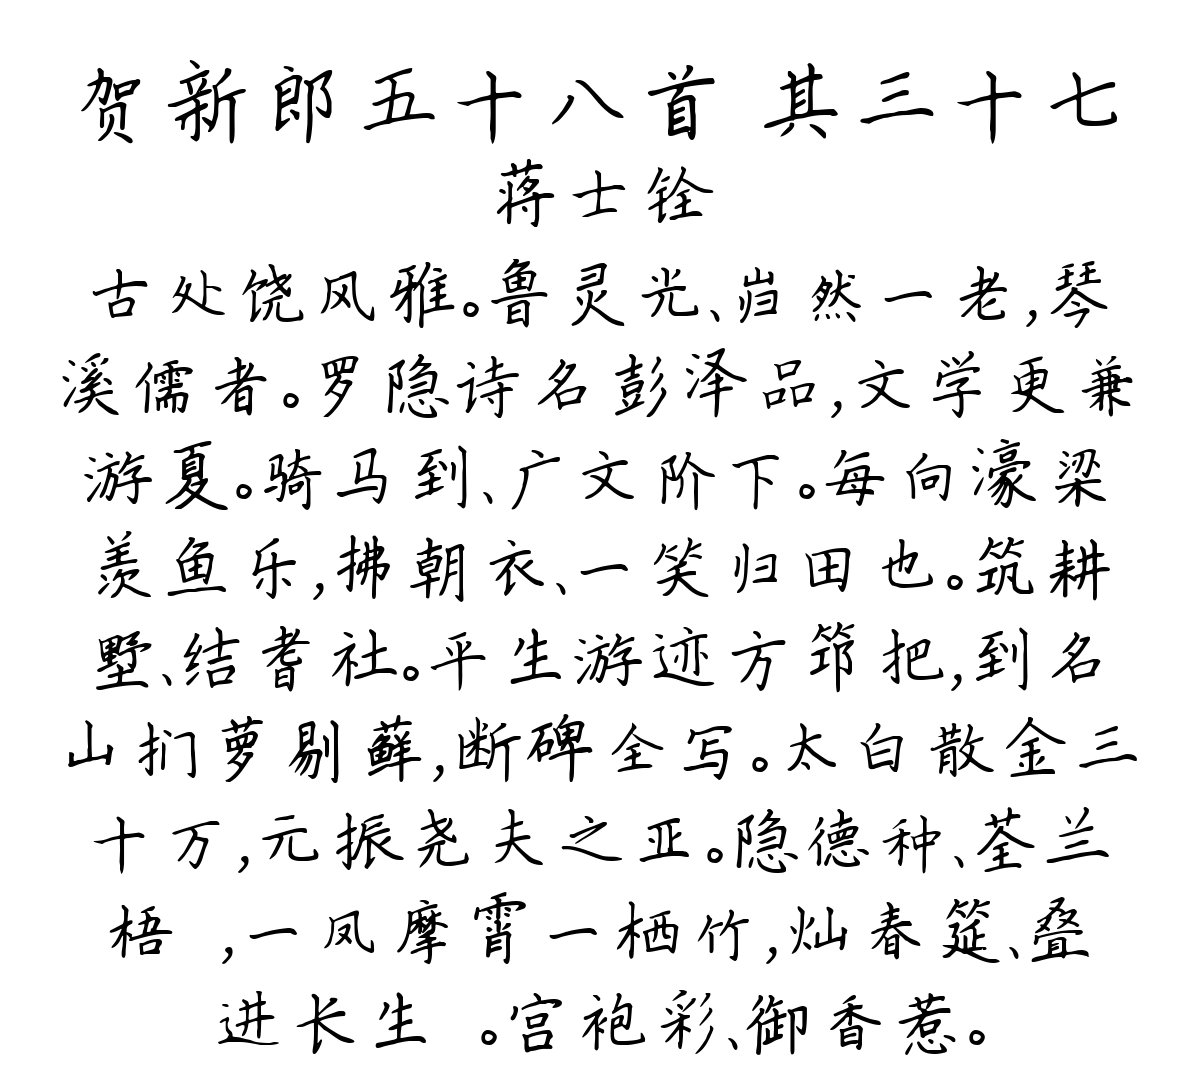 贺新郎五十八首 其三十七
蒋士铨
古处饶风雅。鲁灵光、岿然一老,琴
溪儒者。罗隐诗名彭泽品,文学更兼
游夏。骑马到、广文阶下。每向濠梁
羡鱼乐,拂朝衣、一笑归田也。筑耕
墅、结耆社。平生游迹方筇把,到名
山扪萝剔藓,断碑全写。太白散金三
十万,元振尧夫之亚。隐德种、荃兰
梧 ,一凤摩霄一栖竹,灿春筵、叠
进长生 。宫袍彩、御香惹。